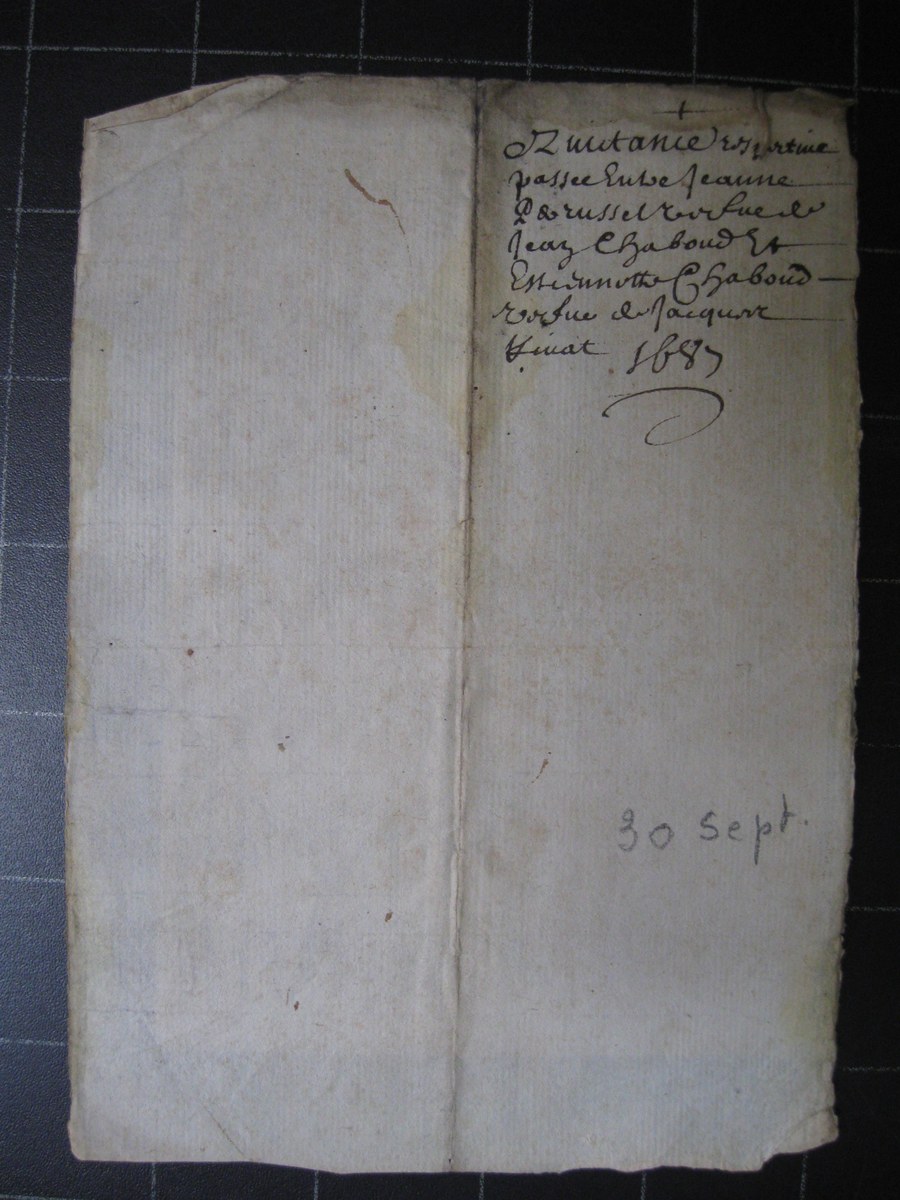 Quictance respective
passee Entre Jeanne
Perusset vefue de
Jean Chaboud Et
Estiennette Chaboud
vefue de Jacques
1687
30 Sept.